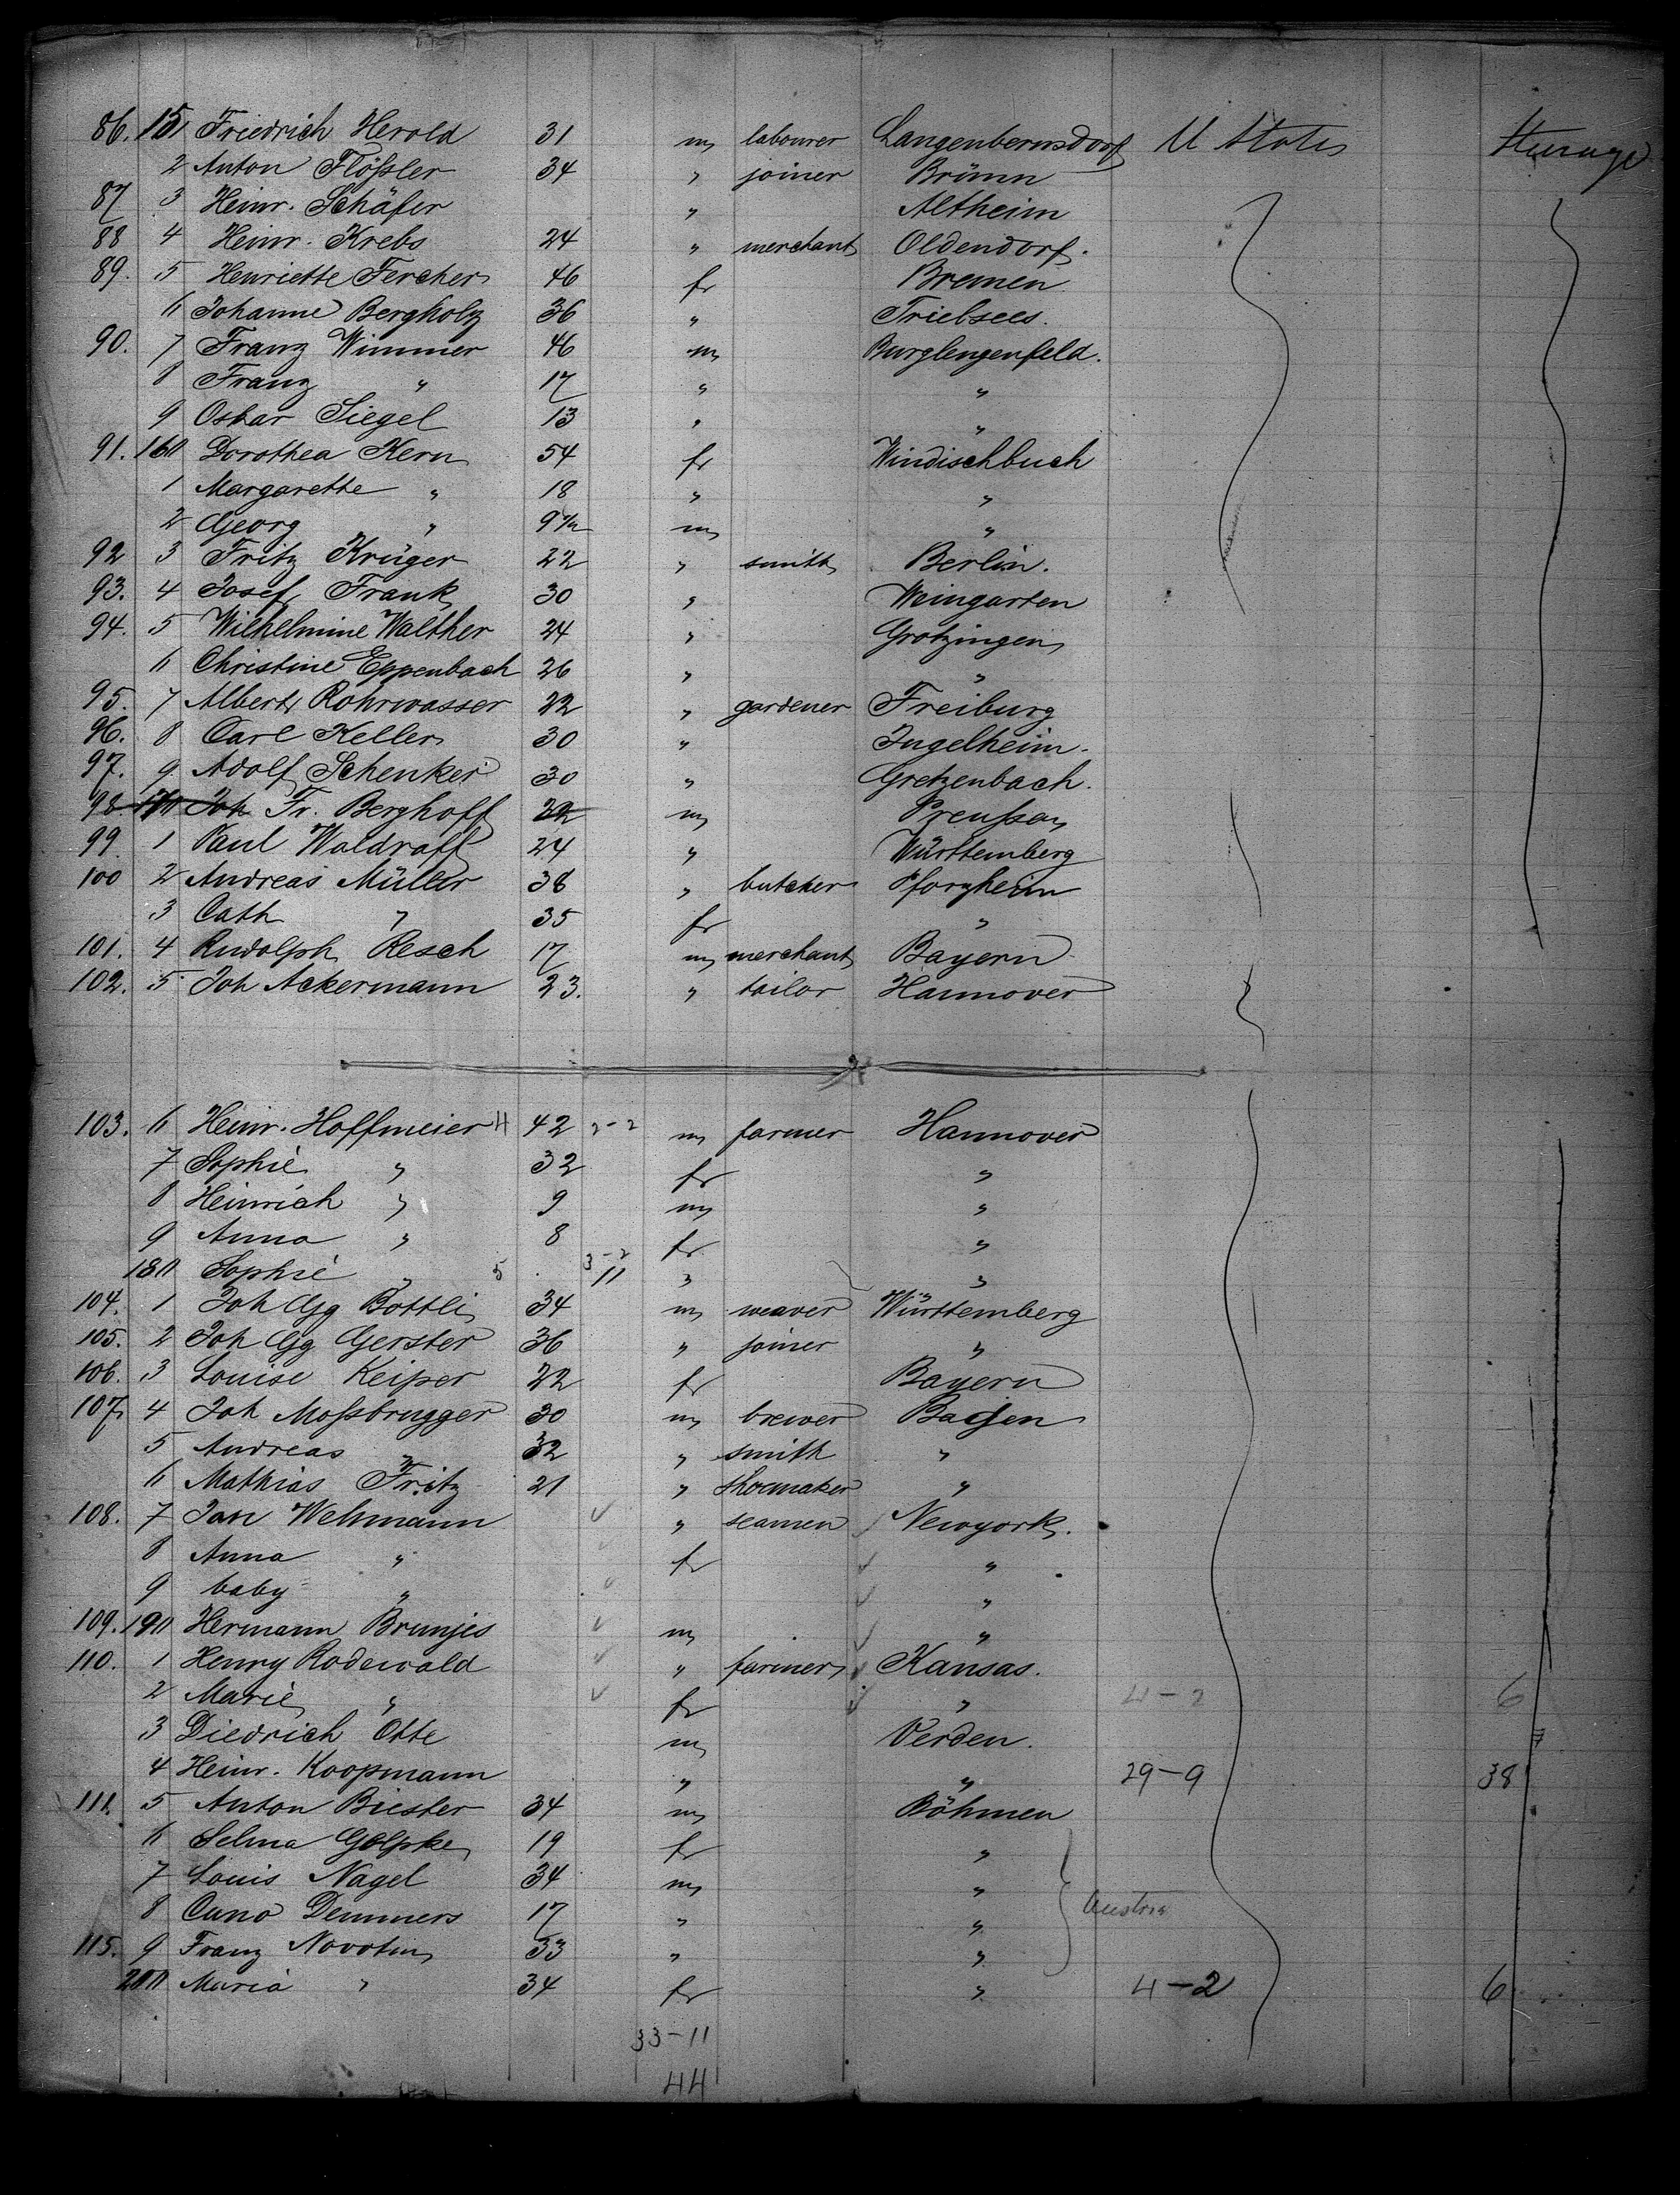 86. 151 Friedrich Herold 31 m labourer Langenbernsdorf U States Steerage
2 Anton Flößler 34 " joiner Brünn
87 3 Heinr. Schäfer " Altheim
88 4 Heinr. Krebs 24 " merchant Oldendorf.
89. 5 Henriette Fercher 46 f Bremen
6 Johanne Bergholz 36 " Triebsees.
90. 7 Franz Wimmer 46 m Burglengenfeld.
8 Franz " 17 " "
9 Oskar Siegel 13 " "
91. 160 Dorothea Kern 54 f Windischbuch
1 Margarethe " 18 " "
2 Georg " 9 m "
92 3 Fritz Krüger 22 " smith Berlin.
93. 4 Josef Frank 30 " Weingarten
94. 5 Wilhelmine Walther 24 " Grotzingen
6 Christine Eppenbach 26 " "
95. 7 Albert Rohrwasser 22 " gardener Freiburg
96. 8 Carl Keller 30 " Ingelheim.
97. 9 Adolf Schenker 30 " Gretzenbach.
98. 170 Joh Fr. Berghoff 22 m Preußen
99 1 Paul Waldraff 24 " Württemberg
100 2 Andreas Müller 38 " butcher Pforzheim
3 Cath " 35 f "
101. 4 Rudolph Resch 17 m merchant Bayern
102. 5 Joh Ackermann 23. " tailor Hannover
103. 6 Heinr. Hoffmeier H 42 2-2 m farmer Hannover
7 Sophie " 32 f "
8 Heinrich " 9 m "
9 Anna " 8 f "
180 Sophie " 5 3-2 11 " "
104. 1 Joh Gg Bottli 34 m weaver Württemberg
105. 2 Joh Gg Gerster 36 " joiner "
106. 3 Louise Keiper 22 f Bayern
107 4 Joh Moßbrugger 30 m brewer Baden
5 Andreas " 32 " smith "
6 Mathias Fritz 21 " shoemaker "
108. 7 Jan Wehmann " seamen Newyork.
8 Anna " f "
9 baby " "
109. 190 Hermann Brunjes m "
110. 1 Henry Rodewald " farmer Kansas.
2 Marie " f " 4-2 6
3 Diedrich Otte m Verden.
4 Heinr. Koopmann " " 29-9 38
111. 5 Anton Biester 34 m Böhmen
6 Selma Golpke 19 f "
7 Louis Nagel 34 m "
8 Cuno Demmers 17 " " Austria
115. 9 Franz Novotin 33 " "
200 Maria " 34 f " 4-2 6
33-11
44